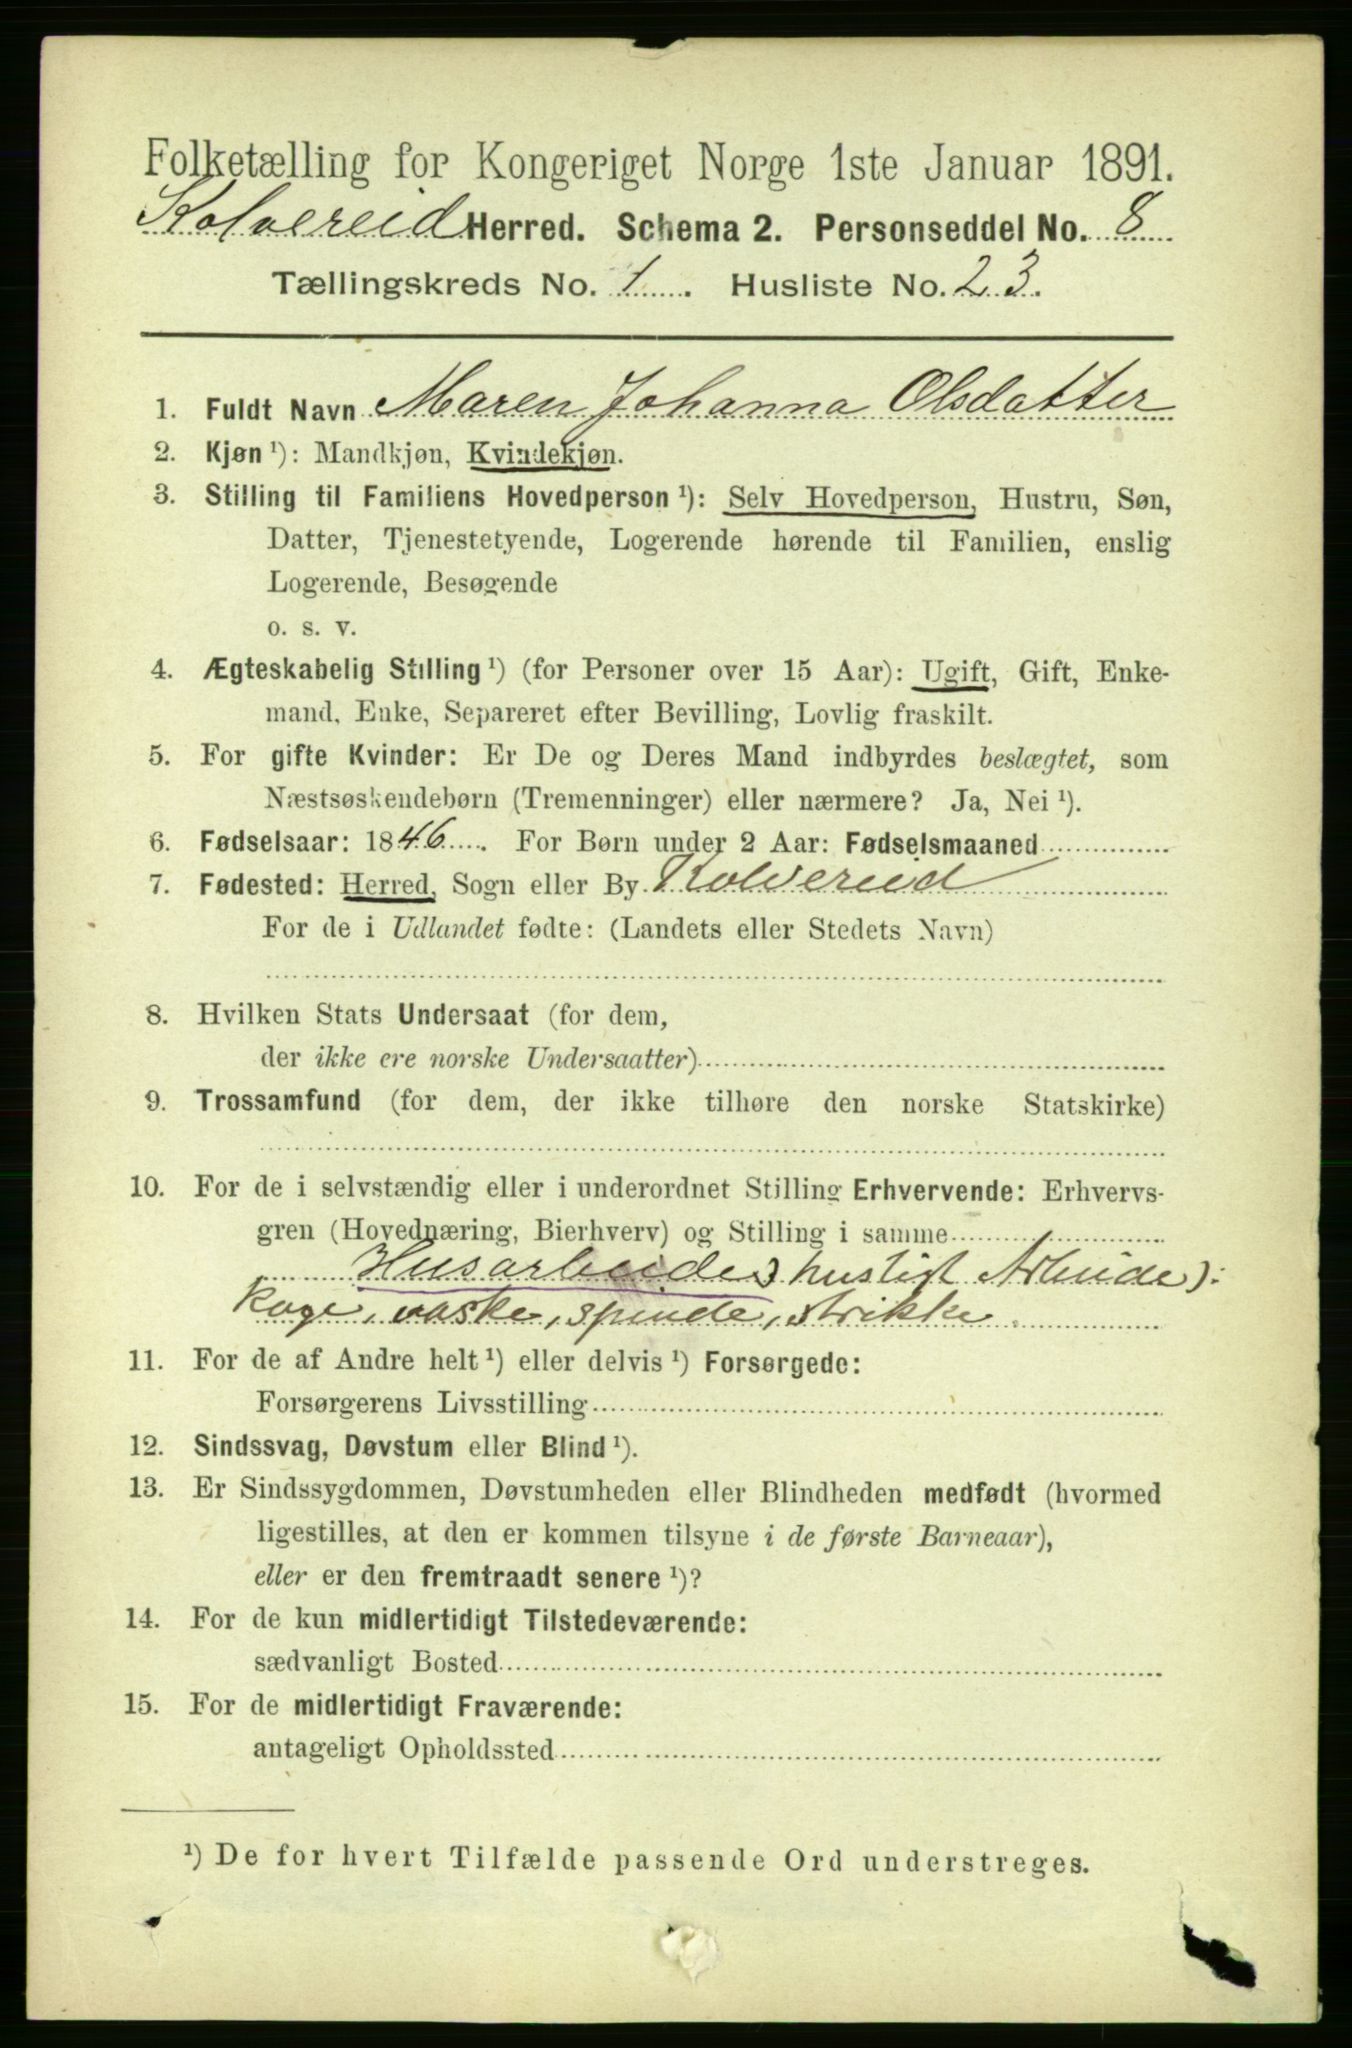 Folketælling for Kongeriget Norge 1ste Januar 1891.
Kolvereid Herred. Schema 2. Personseddel No. 8
Tællingskreds No. 1. Husliste No. 23.
1. Fuldt Navn Maren Johanna Olsdatter
2. Kjøn ¹): Mandkjøn, Kvindekjøn.
3. Stilling til Familiens Hovedperson ¹): Selv Hovedperson, Hustru, Søn,
Datter, Tjenestetyende, Logerende hørende til Familien, enslig
Logerende, Besøgende
o. s. v.
4. Ægteskabelig Stilling ¹) (for Personer over 15 Aar): Ugift, Gift, Enke-
mand, Enke, Separeret efter Bevilling, Lovlig fraskilt.
5. For gifte Kvinder: Er De og Deres Mand indbyrdes beslægtet, som
Næstsøskendebørn (Tremenninger) eller nærmere? Ja, Nei ¹).
6. Fødselsaar: 1846. For Børn under 2 Aar: Fødselsmaaned
7. Fødested: Herred, Sogn eller By Kolvereid
For de i Udlandet fødte: (Landets eller Stedets Navn)
8. Hvilken Stats Undersaat (for dem,
der ikke ere norske Undersaatter)
9. Trossamfund (for dem, der ikke tilhøre den norske Statskirke)
10. For de i selvstændig eller i underordnet Stilling Erhvervende: Erhvervs-
gren (Hovednæring, Bierhverv) og Stilling i samme
Husarbeide) husligt Arbeide):
koge, vaske, spinde, strikke.
11. For de af Andre helt ¹) eller delvis ¹) Forsørgede:
Forsørgerens Livsstilling
12. Sindssvag, Døvstum eller Blind ¹).
13. Er Sindssygdommen, Døvstumheden eller Blindheden medfødt (hvormed
ligestilles, at den er kommen tilsyne i de første Barneaar),
eller er den fremtraadt senere ¹)?
14. For de kun midlertidigt Tilstedeværende:
sædvanligt Bosted
15. For de midlertidigt Fraværende:
antageligt Opholdssted
¹) De for hvert Tilfælde passende Ord understreges.